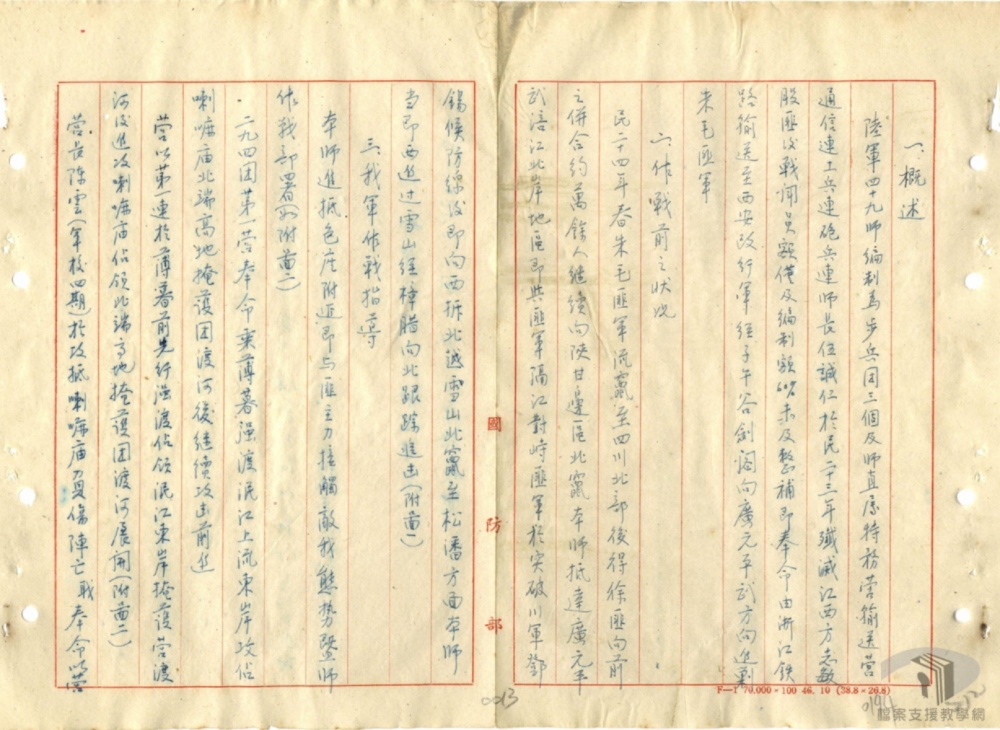 一、概述
陸軍四十九師編制爲步兵團三個及師直屬特務營輸送營
通信連工兵連砲兵連師長伍誠仁於民二十三年殲滅江西方志敏
股匪後戰鬥員額僅及編制額 未及整補即奉命由浙江鉄
路輸送至西安改行軍經子午谷劍閣向廣元平武方向進剿
朱毛匪軍
二、作戰前之狀况
民二十四年春朱毛匪軍流竄至四川北部後得徐匪向前
之併合約萬餘人継續向陝甘邊區北竄本師抵達廣元平
武涪江北岸地區即與匪軍隔江對峙匪軍於突破川軍鄧
錫候防線後即向西折北越雪山北竄至松潘方面本師
当即西進过雪山經樟腊向北跟踪進击(附啚一)
三、我軍作戰指導
本師進抵色庄附近即与匪主力接觸敵我態势暨师
作戰部署(如附啚二)
二九四团第一营奉命乘薄暮强渡泯江上流東岸攻佔
喇嘛庙北端高地掩護团渡河後継續攻击前進
营以第一連於薄暮前先行强渡佔領泯江東岸掩護营渡
河後進攻喇嘛庙佔領北端高地掩護团渡河展開(附啚二)
营長陈雲(軍校四期)於攻抵喇嘛庙負傷陣亡戰奉命以营
國防部
0013
F—1 70,000×100 46. 10 (38.8×26.8)
檔案支援教學網